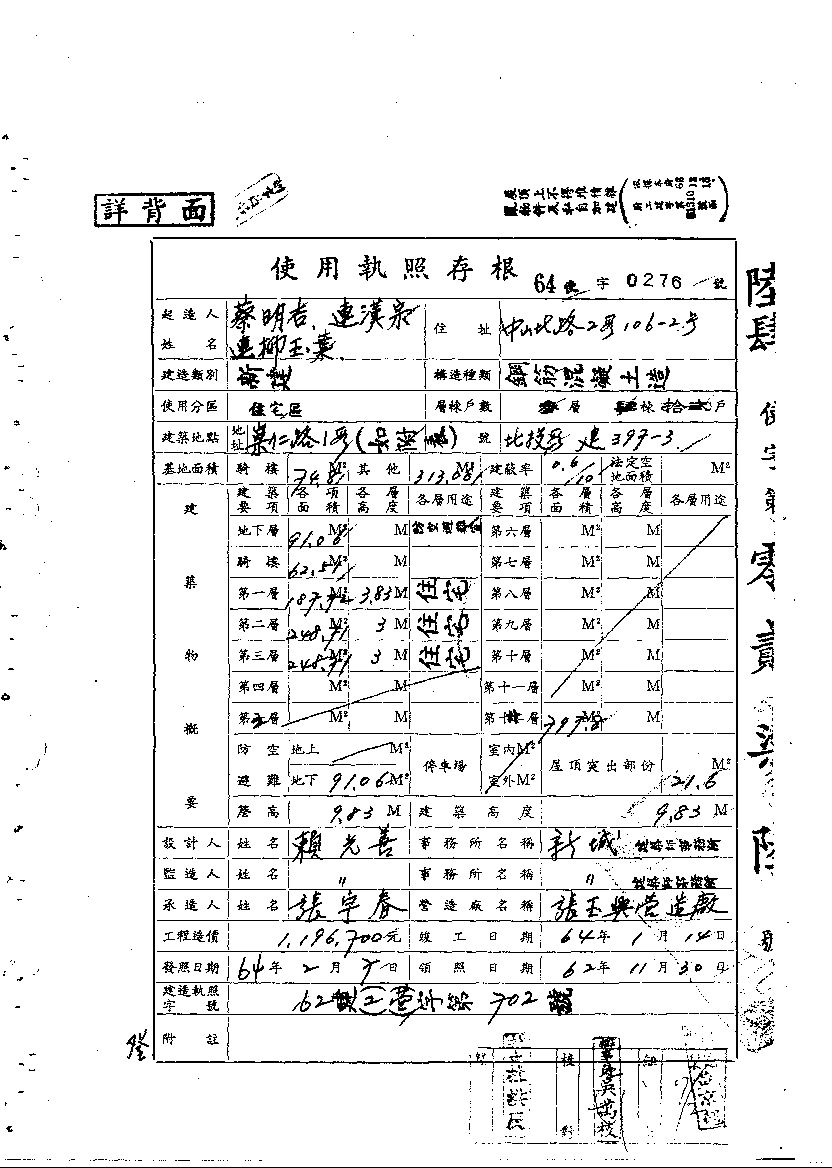 詳背面
屋頂上不得堆積雜
使用執照存根 64使字0276號
起造人姓名 蔡明吉、連漢宗 連柳玉葉 住址 中山北路2段106-2号
建造類別 新建 構造種類 鋼筋混凝土造
使用分區 住宅區 層棟戶數 層 棟 戶
建築地點 地址 崇仁路1段 號 北投段 建397-3
基地面積 騎樓 74.81 M² 其他 313.081 M² 建蔽率 0.6/10 法定空地面積 M²
建築物概要 建築要項 各項面積 各層高度 各層用途 建築要項 各層面積 各層高度 各層用途
地下層 91.06 M² M 第六層 M² M
騎樓 62.51 M² M 第七層 M² M
第一層 187.72 M² 3.83 M 住宅 第八層 M² M
第二層 248.71 M² 3 M 住宅 第九層 M² M
第三層 248.71 M² 3 M 住宅 第十層 M² M
第四層 M² M 第十一層 M² M
第五層 M² M 第十 層 797.8 M² M
防空避難 地上 M² 停車場 室內 M² 屋頂突出部份 M²
地下 91.06 M² 室外 M² 21.6
簷高 9.83 M 建築高度 9.83 M
設計人 姓名 賴光善 事務所名稱 新城
監造人 姓名 〃 事務所名稱 〃
承造人 姓名 張宇春 營造廠名稱 張玉興營造廠
工程造價 1,196,700元 竣工日期 64年1月14日
發照日期 64年2月7日 領照日期 62年11月30日
建造執照字號 62 工營 702號
附註
陸肆 使字第 零貳柒陸 號